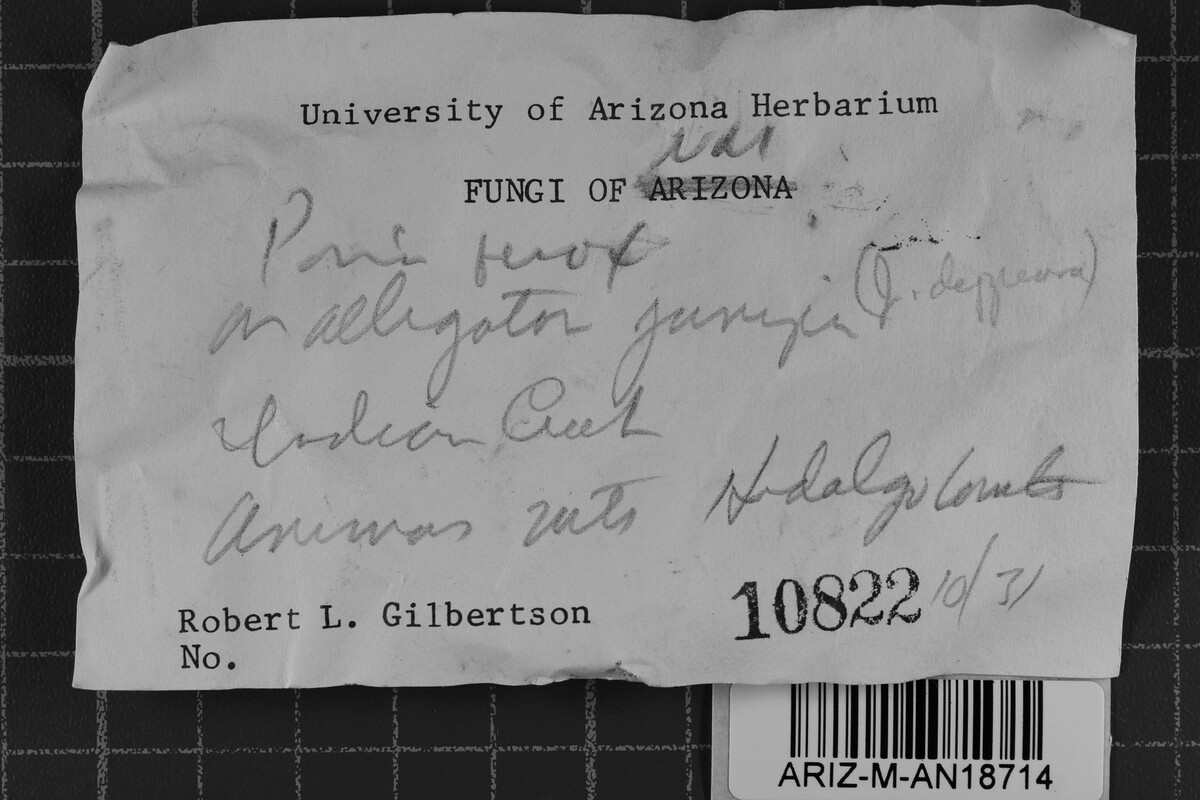 University of Arizona Herbarium
FUNGI OF ARIZONA
Poria ferox
on alligator juniper (J. deppeana)
Indian Creek
Animas mts Hidalgo County
10822 10/31
Robert L. Gilbertson
No.
ARIZ-M-AN18714